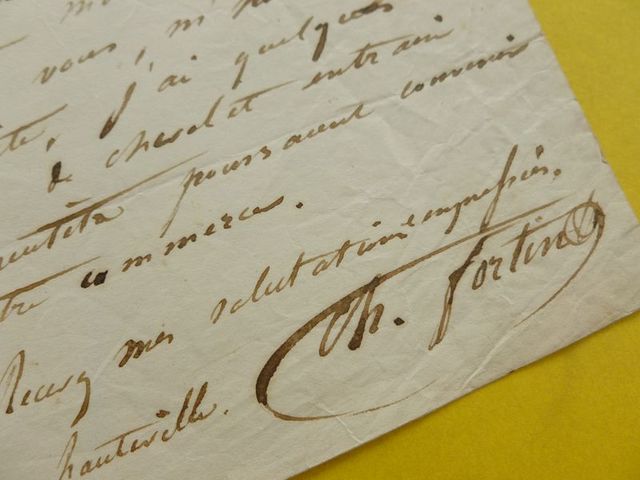 vous, m'
j'ai quelques
de chevalet entrain
pourraient convenir
commerce.
Recevez mes salutations empressées.
Th. Fortin
hauteville.